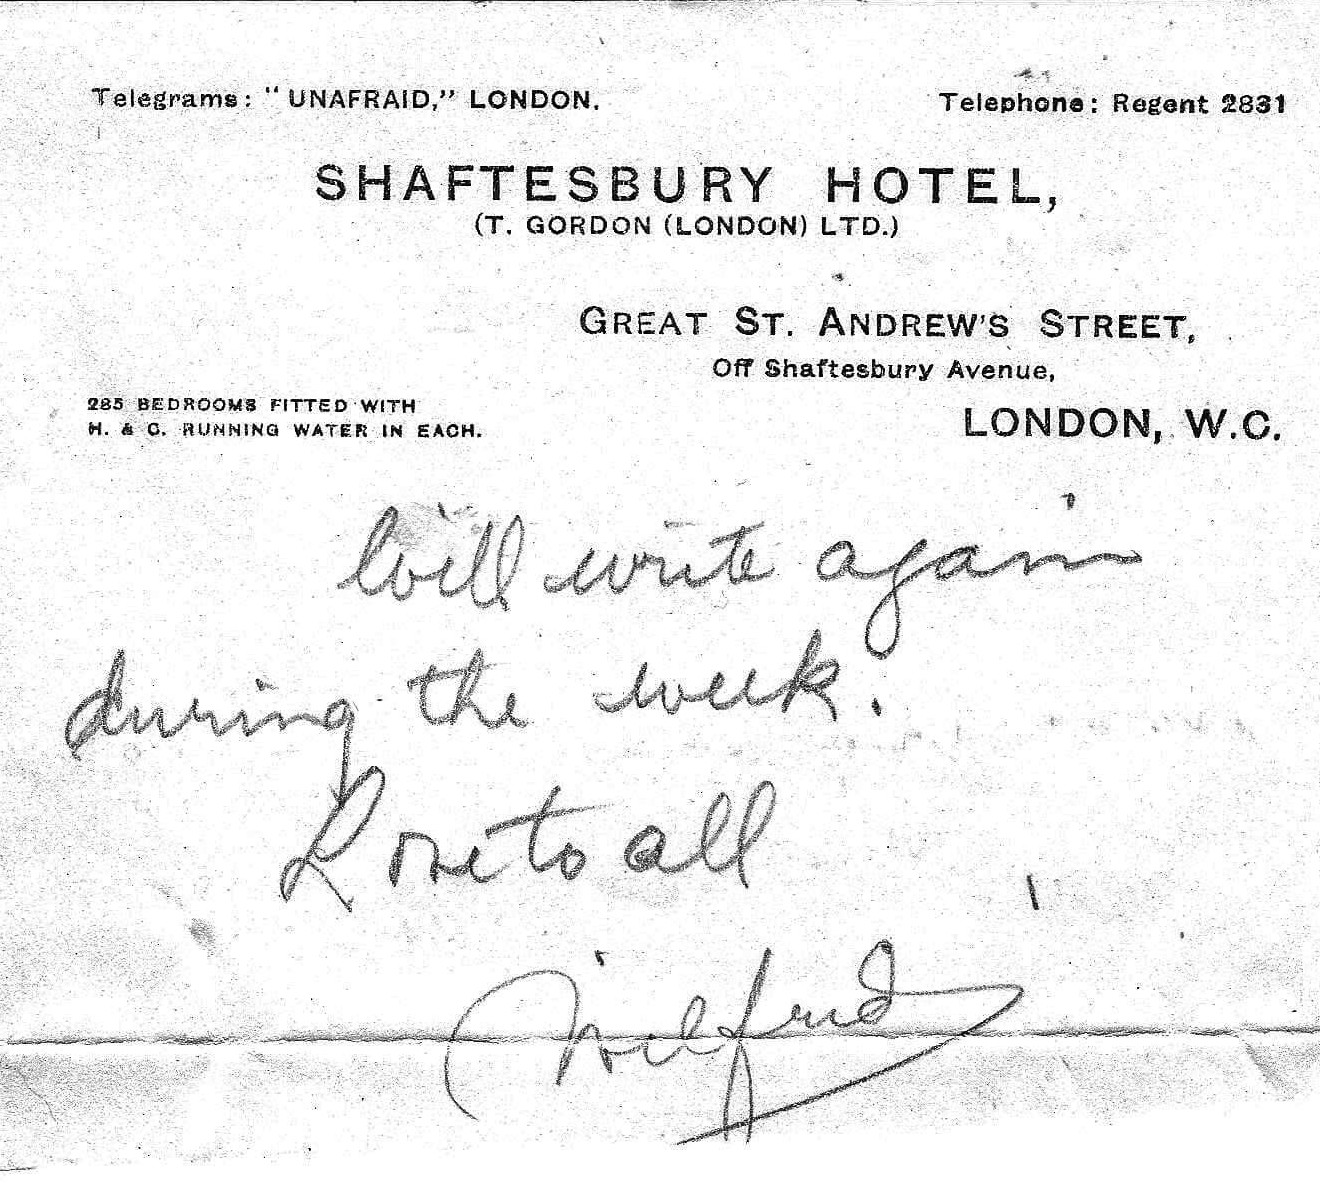 Telegrams: "UNAFRAID," LONDON.
Telephone: Regent 2831
SHAFTESBURY HOTEL,
(T. GORDON (LONDON) LTD.)
GREAT ST. ANDREW'S STREET,
Off Shaftesbury Avenue,
285 BEDROOMS FITTED WITH
H. & C. RUNNING WATER IN EACH.
LONDON, W.C.
Will write again
during the week.
Love to all
Wilfrid